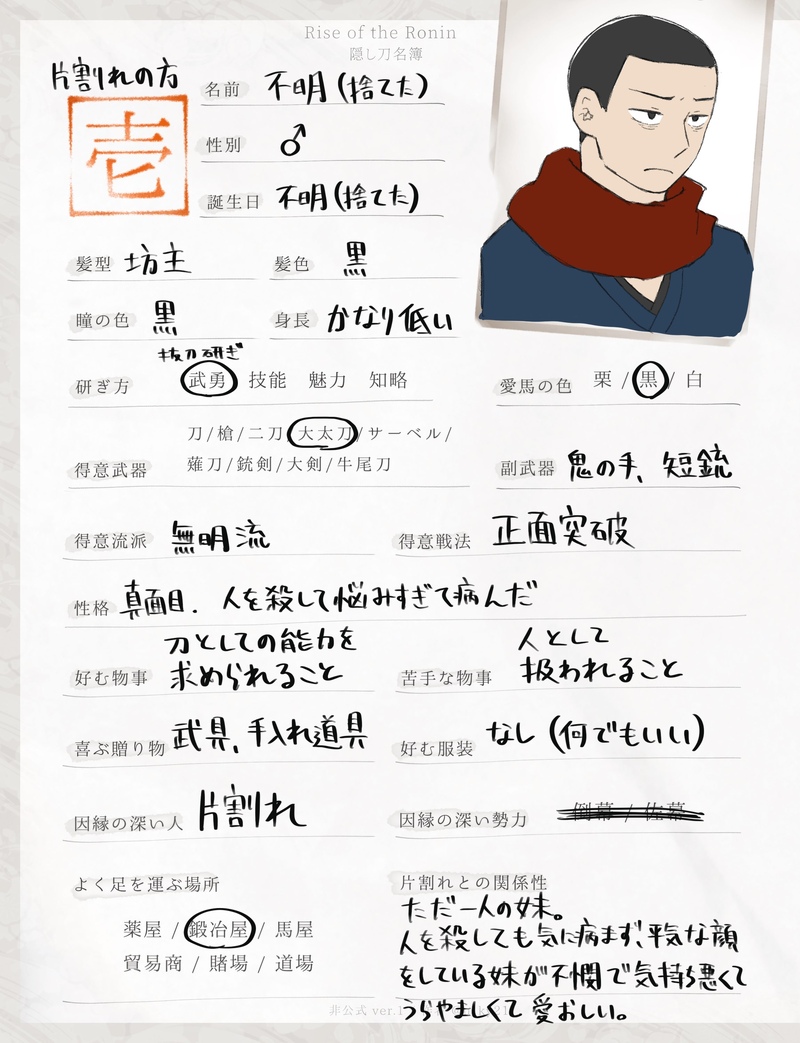 Rise of the Ronin
隠し刀名簿
片割れの方
壱
名前 不明(捨てた)
性別 ♂
誕生日 不明(捨てた)
髪型 坊主
髪色 黒
瞳の色 黒
身長 かなり低い
抜刀研ぎ
研ぎ方 武勇 技能 魅力 知略
愛馬の色 栗 / 黒 / 白
刀/槍/二刀/大太刀/サーベル/
得意武器 薙刀/銃剣/大剣/牛尾刀
副武器 鬼の手、短銃
得意流派 無明流
得意戦法 正面突破
性格 真面目. 人を殺して悩みすぎて病んだ
刀としての能力を
好む物事 求められること
人として
苦手な物事 扱われること
喜ぶ贈り物 武具、手入れ道具
好む服装 なし (何でもいい)
因縁の深い人 片割れ
因縁の深い勢力 倒幕 / 佐幕
よく足を運ぶ場所
薬屋 / 鍛冶屋 / 馬屋
貿易商 / 賭場 / 道場
片割れとの関係性
ただ一人の妹。
人を殺しても気に病まず、平気な顔
をしている妹が不憫で気持ち悪くて
うらやましくて愛おしい。
非公式 ver.1